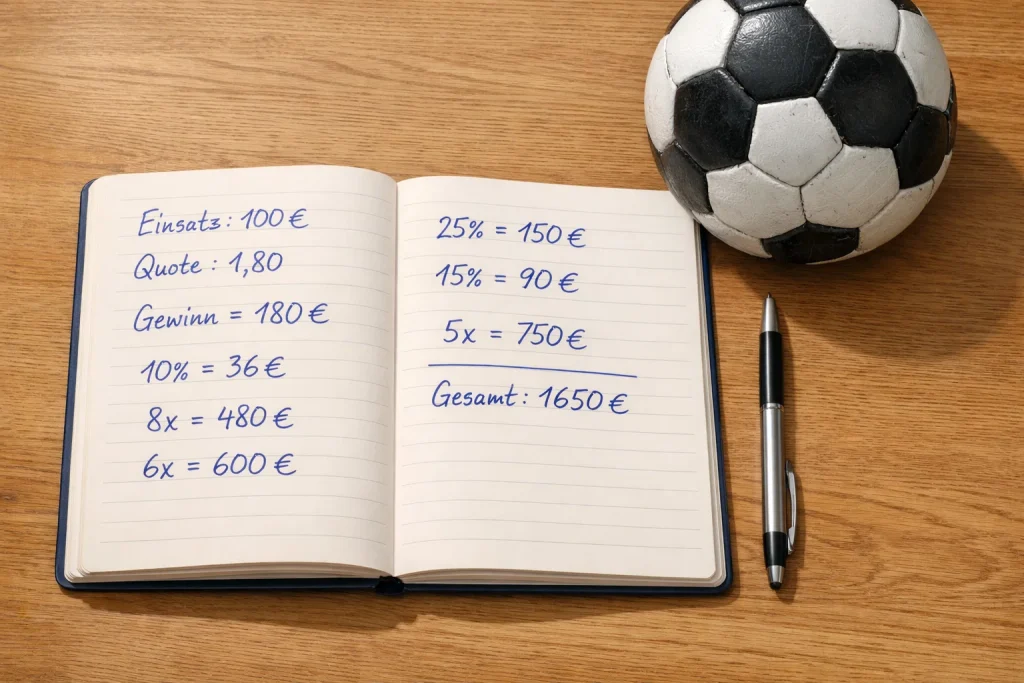 Einsatz: 100 €
Quote : 1,80
Gewinn = 180 €
10% = 36 €
8x = 480 €
6x = 600 €
25% = 150 €
15% = 90 €
5x = 750 €
Gesamt: 1650 €